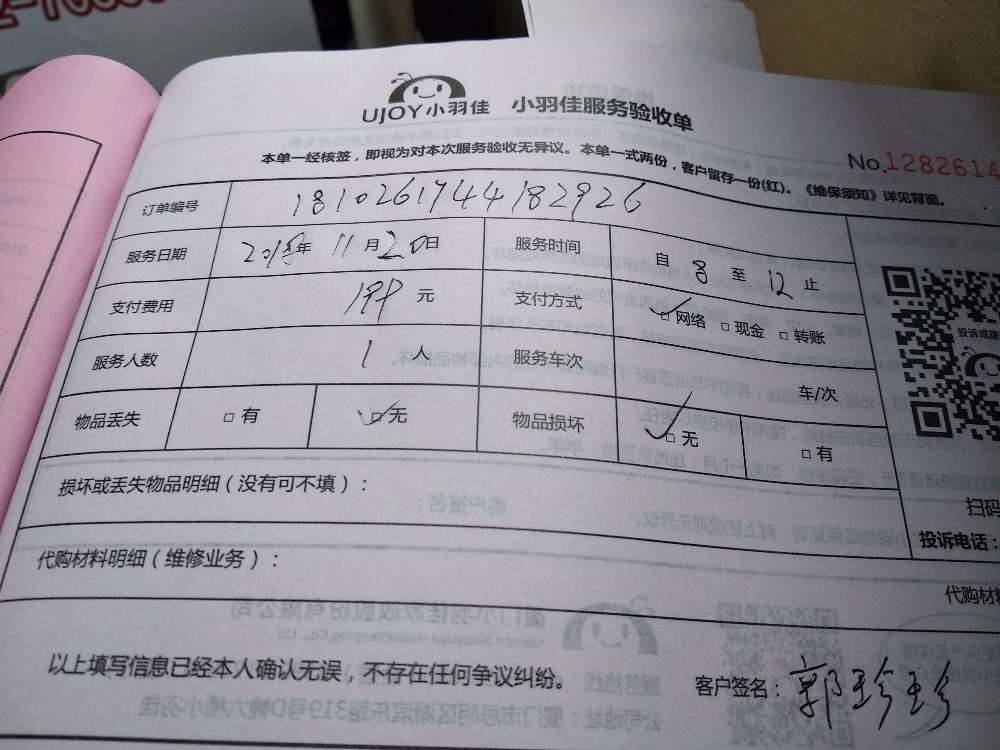 UJOY小羽佳 小羽佳服务验收单
本单一经核签，即视为对本次服务验收无异议。本单一式两份，客户留存一份(红)。《维保须知》详见背面。
No.1282614
订单编号 181026174418 2926
服务日期 2018年 11月20日 服务时间 自 8 至 12 止
支付费用 199 元 支付方式 ☑网络 □现金 □转账
服务人数 1 人 服务车次 车/次
物品丢失 □有 ☑无 物品损坏 ☑无 □有
损坏或丢失物品明细（没有可不填）：
扫码
投诉电话：
代购材料明细（维修业务）：
代购材料
以上填写信息已经本人确认无误，不存在任何争议纠纷。
客户签名：郭珍珍